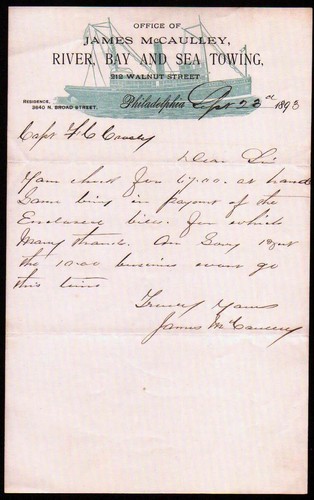 OFFICE OF
JAMES McCAULLEY,
RIVER, BAY AND SEA TOWING,
212 WALNUT STREET
RESIDENCE,
2840 N. BROAD STREET.
Philadelphia Sept 23rd 1893
Capt Crosby
Dear Sir
Your check for 67.00 at hand
Same being in payment of the
Enclosed bills. for which
Many thanks. Am Sorry
the 10.00 business
this time
Truly Yours
James McCaulley